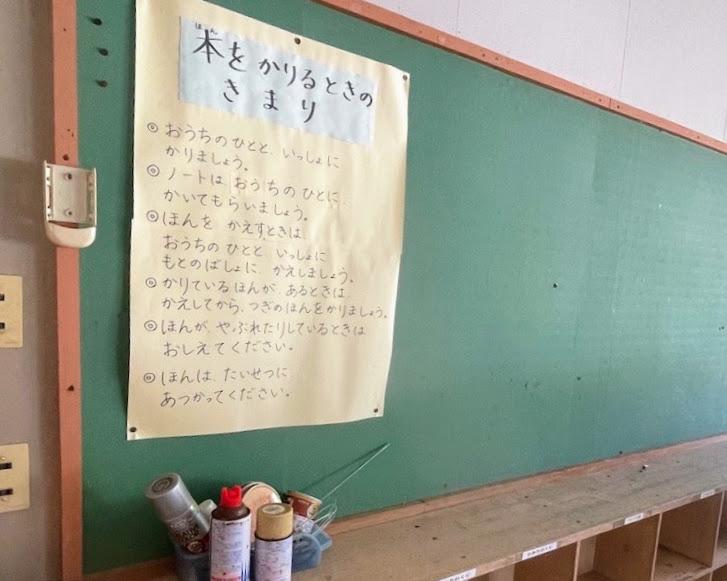 ほん
本をかりるときの
きまり
◎おうちのひとと、いっしょに
かりましょう。
◎ノートは おうちのひとに、
かいてもらいましょう。
◎ほんを かえすときは、
おうちの ひとと いっしょに
もとのばしょに、かえしましょう。
◎かりているほんが、あるときは、
かえしてから、つぎのほんをかりましょう。
◎ほんが、やぶれたりしているときは
おしえてください。
◎ほんは、たいせつに
あつかってください。